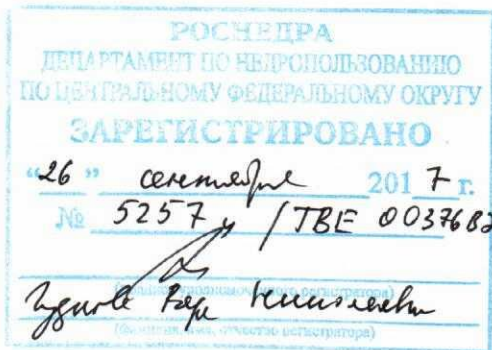 РОСНЕДРА
ДЕПАРТАМЕНТ ПО НЕДРОПОЛЬЗОВАНИЮ
ПО ЦЕНТРАЛЬНОМУ ФЕДЕРАЛЬНОМУ ОКРУГУ
ЗАРЕГИСТРИРОВАНО
"26" сентября 2017 г.
№ 5257 / ТВЕ 003768
(подпись уполномоченного регистратора)
(фамилия, имя, отчество регистратора)